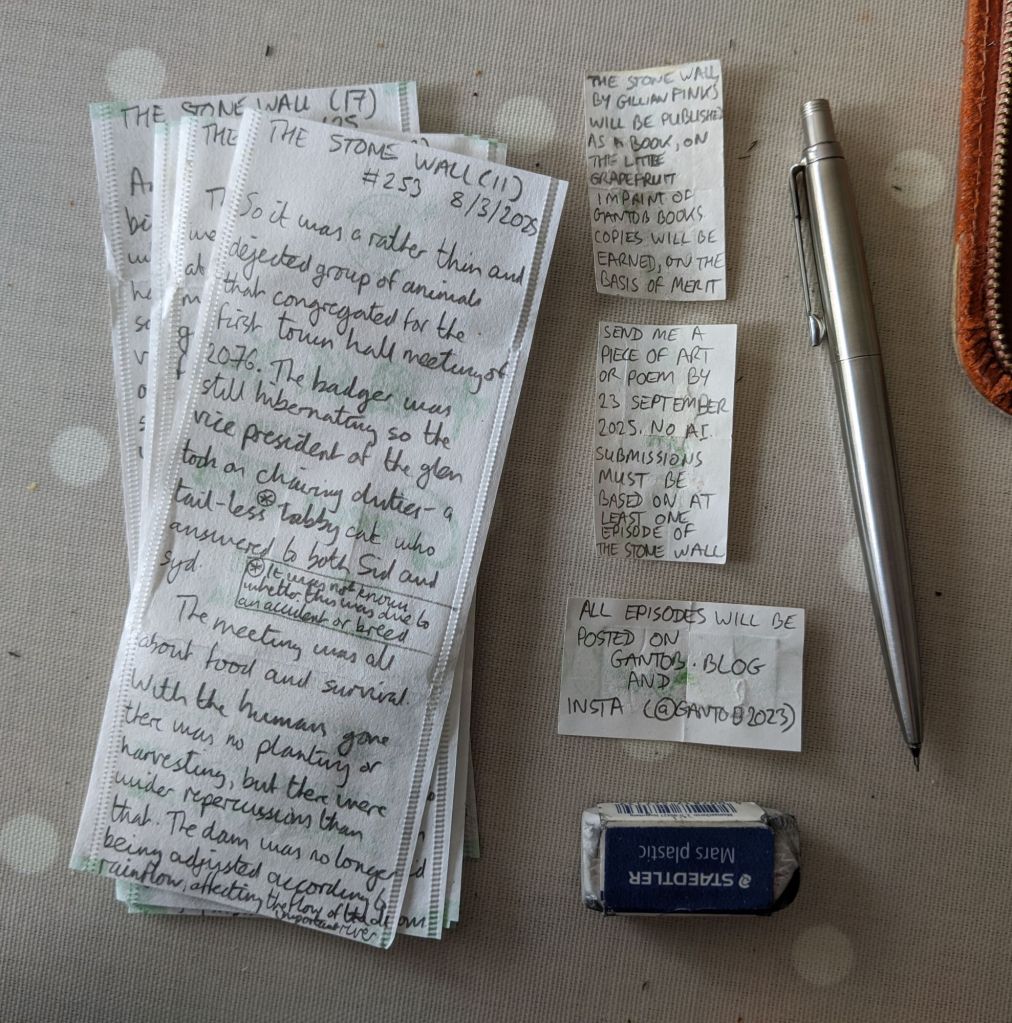 THE STONE WALL (17)
THE
THE STONE WALL (11)
#253 8/3/2025
So it was a rather thin and
dejected group of animals
that congregated for the
first town hall meeting of
2076. The badger was
still hibernating so the
vice president of the glen
took on chairing duties - a
tail-less ⊛ tabby cat who
answered to both Sid and
Syd.
⊛ It was not known
whether this was due to
an accident or breed
The meeting was all
about food and survival.
With the human gone
there was no planting or
harvesting, but there were
wider repercussions than
that. The dam was no longer
being adjusted according to
rainflow, affecting the flow of the
important river
THE STONE WALL
BY GILLIAN PINKS
WILL BE PUBLISHED
AS A BOOK, ON
THE LITTLE
GRAPEFRUIT
IMPRINT OF
GANTOB BOOKS
COPIES WILL BE
EARNED, ON THE
BASIS OF MERIT
SEND ME A
PIECE OF ART
OR POEM BY
23 SEPTEMBER
2025. NO A.I.
SUBMISSIONS
MUST BE
BASED ON AT
LEAST ONE
EPISODE OF
THE STONE WALL
ALL EPISODES WILL BE
POSTED ON
GANTOB.BLOG
AND
INSTA (@GANTOB2023)
STAEDTLER
Mars plastic